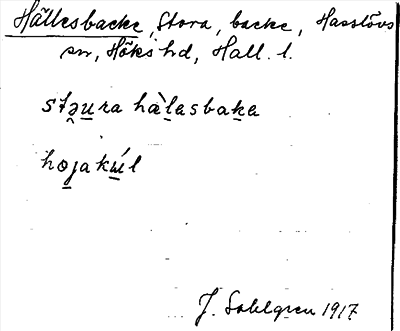 Hällesbacke, Stora, backe, Hasslövs
sn, Höks hd, Hall. l.
stəu̲ra hàl̲asbak̲a
ho̲jakɯ̲́l
J. Sahlgren 1917